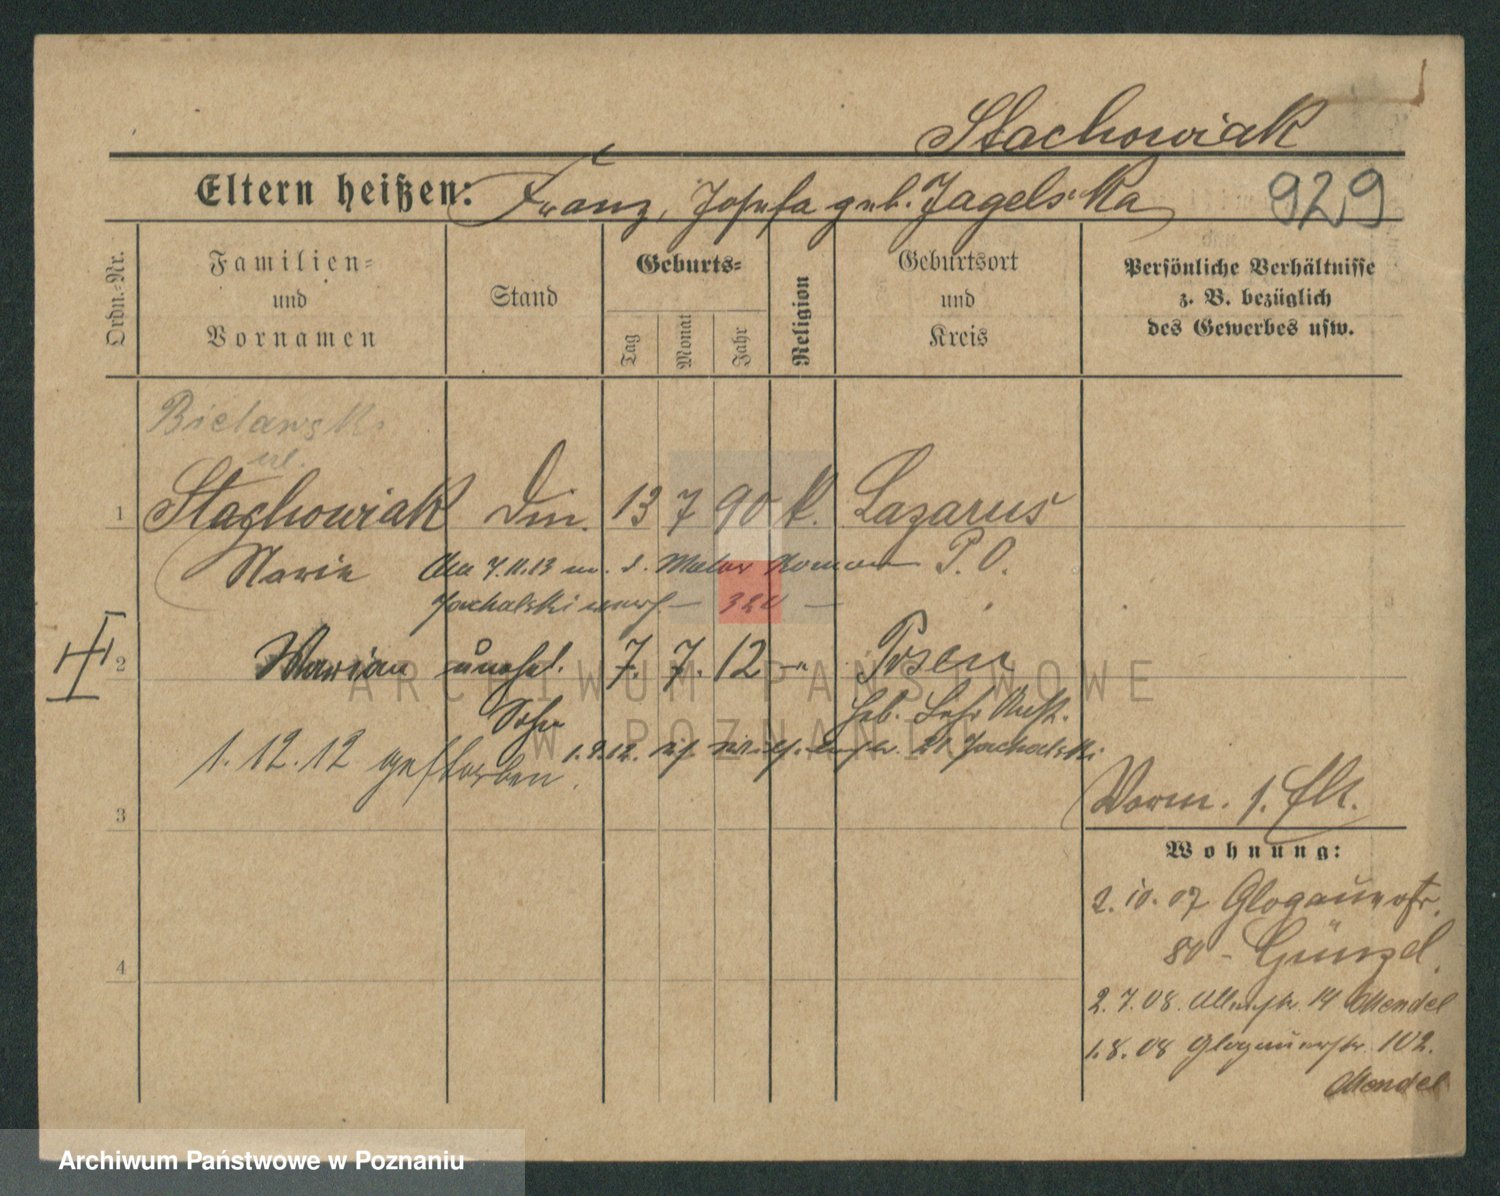 Stachowiak
Eltern heißen: Franz, Josefa geb. Jagelska
929
Ordn.-Nr.
Familien-
und
Vornamen
Stand
Geburts-
Tag
Monat
Jahr
Religion
Geburtsort
und
Kreis
Persönliche Verhältnisse
z. B. bezüglich
des Gewerbes usw.
Bielawski
1 Stachowiak Din. 13 7 90 k. Lazarus
Marie 7.11.13 m. d. Maler Roman P. O.
Jachalski
2 Marian unehel. 7. 7. 12 " Posen
Sohn Geb.
1.12.12 gestorben.
Jachalski
3
Worm.
Wohnung:
2.10.07 Glogauerstr.
80 - Günzel.
4
2.7.08. 14 Mendel
1.8.08 Glogauerstr. 102.
Mendel
ARCHIWUM PAŃSTWOWE
W POZNANIU
Archiwum Państwowe w Poznaniu